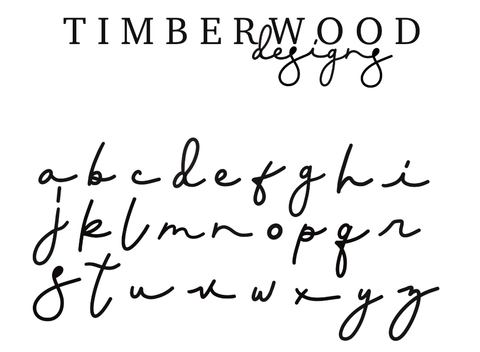 TIMBERWOOD
designs
a b c d e f g h i
j k l m n o p q r
s t u v w x y z